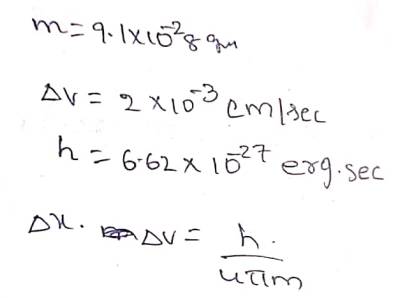 m = 9.1×10⁻²⁸ gm
ΔV = 2 ×10⁻³ cm/sec
h = 6.62 × 10⁻²⁷ erg.sec
Δx. ΔV = h. / 4πm